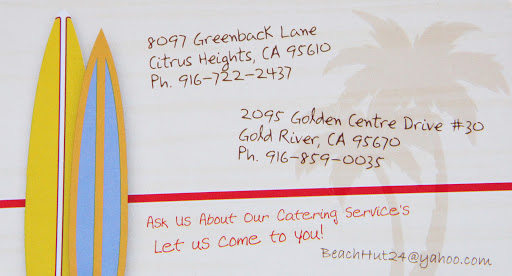 8097 Greenback Lane
Citrus Heights, CA 95610
Ph. 916-722-2437
2095 Golden Centre Drive #30
Gold River, CA 95670
Ph. 916-859-0035
Ask Us About Our Catering Service's
Let us come to you!
BeachHut24@yahoo.com